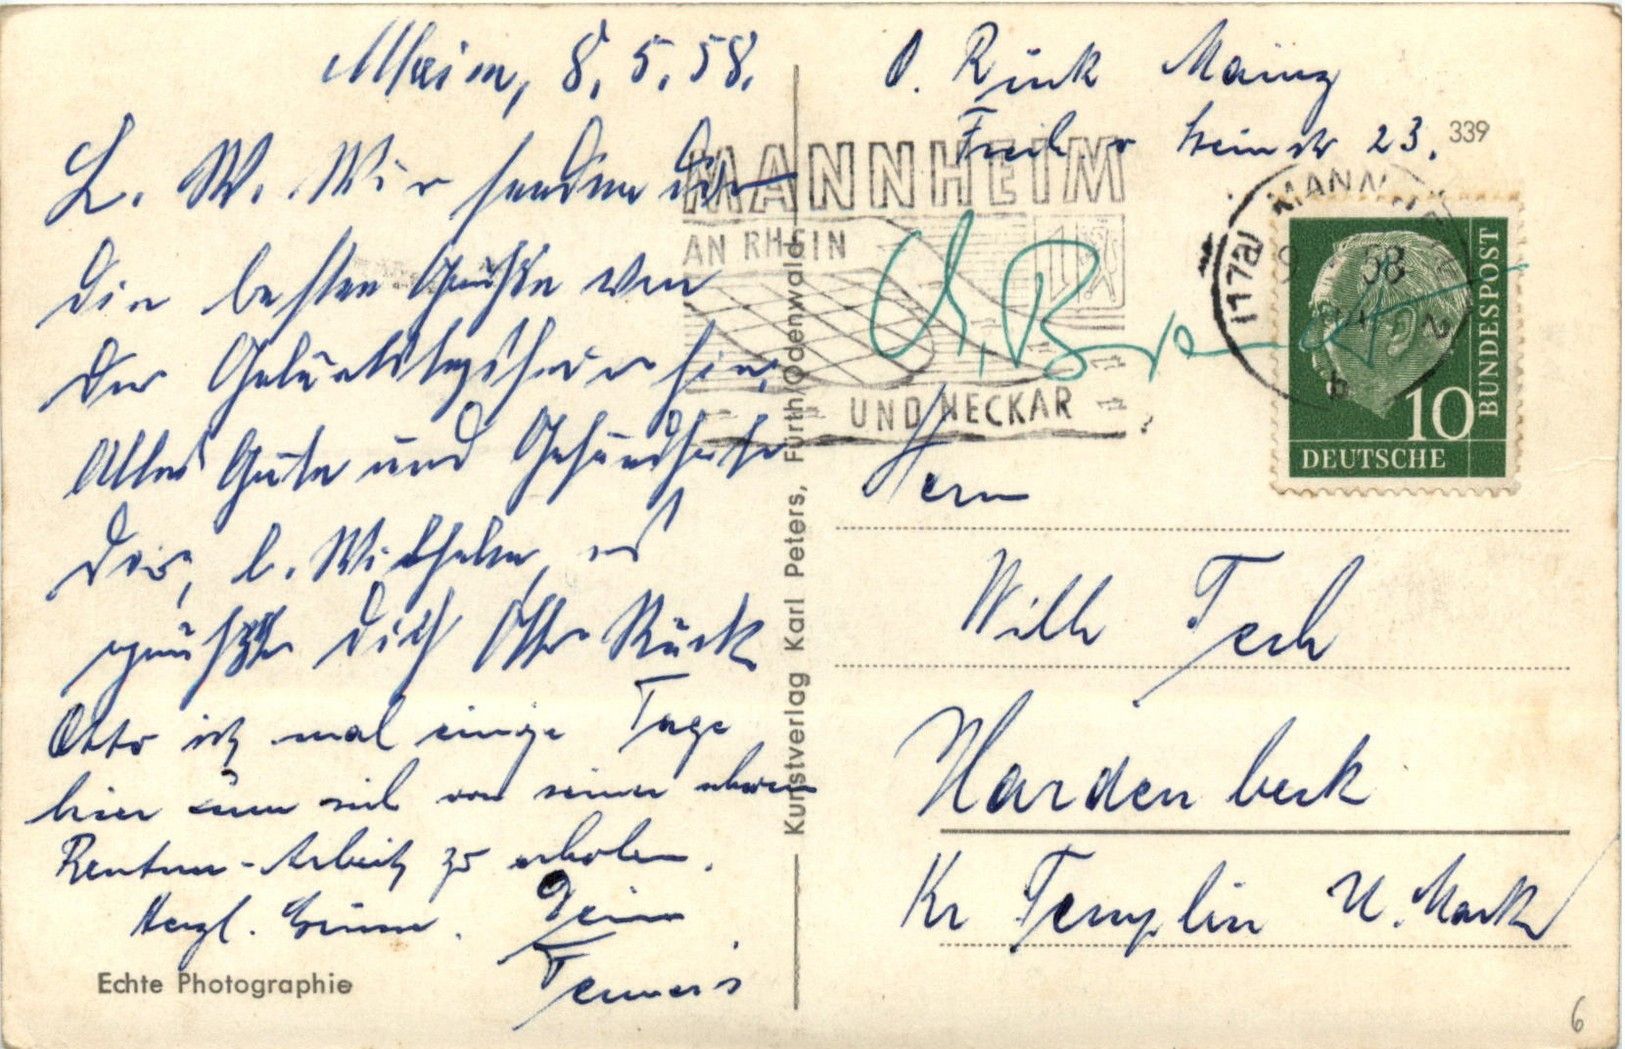 8. 5. 58.
L. W. Wir senden Dir
die besten Grüße von
der Geburtstagsfeier hier,
Alles Gute und Gesundheit
Dir, l. Wilhelm, es
grüßt Dich Otto Rück
Otto ist mal einige Tage
hier um sich von seiner
Rentner-Arbeit zu erholen.
Herzl. Grüsse. Deine
Echte Photographie
Kunstverlag Karl Peters, Fürth/Odenwald
O. Rück Mainz
Freih. v Steinstr 23.
339
MANNHEIM
AN RHEIN
UND NECKAR
(17a) MANNHEIM 2
9 58
b
DEUTSCHE
BUNDESPOST
10
Herrn
Wilh Tesch
Hardenbeck
Kr Templin U. Mark
6